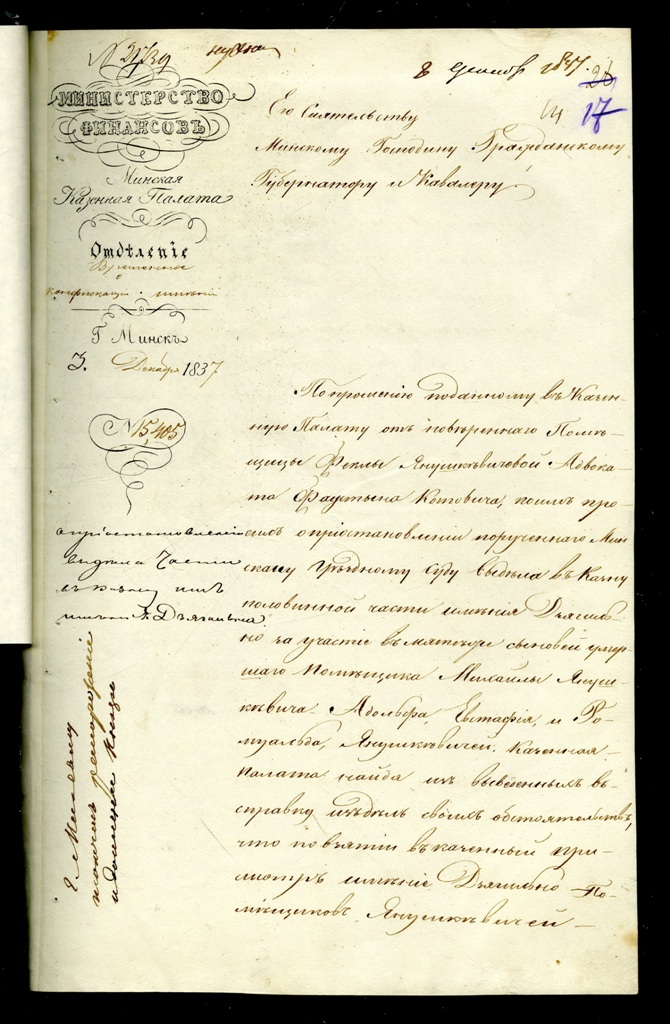 N 2739
8 декабря 1837.
26
17
МИНИСТЕРСТВО
ФИНАНСОВЪ
Минская
Казенная Палата
Отдѣленіе
Временное
конфискац. имѣній
Г Минскъ
3. Декабря 1837
N 15,405
о пріостановленіи
выдѣла части
въ казну изъ
имѣнія Дзягильна.
Его Сіятельству
Минскому Господину Гражданскому
Губернатору и Кавалеру
По прошенію поданному въ Казен-
ную Палату отъ повѣреннаго Помѣ-
щицы Феклы Янушкевичовой Адвока-
та Фаустына Котовича, коимъ про-
силъ о пріостановленіи порученнаго Мин-
скому Уѣздному Суду выдѣла въ Казну
половинной части имѣнія Дзягиль-
но за участіе въ мятежѣ сыновей умер-
шаго Помѣщика Михайлы Януш-
кевича. Адольфа, Евстафія, и Ро-
муальда, Янушкевичей. Казенная
Палата найдя изъ выведенныхъ въ
справку изъ дѣлъ своихъ обстоятельствъ,
что по взятіи въ казенный при-
смотръ имѣніе Дзягильно По-
мѣщиковъ Янушкевичей